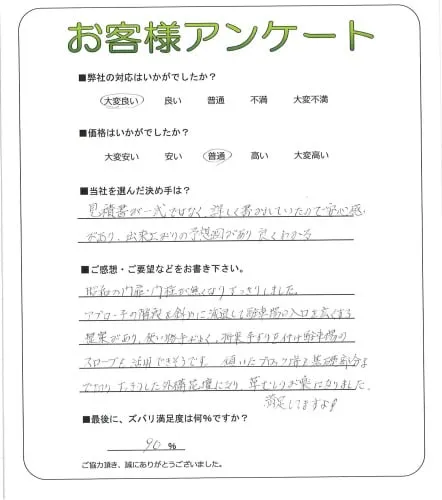 お客様アンケート
■弊社の対応はいかがでしたか？
大変良い 良い 普通 不満 大変不満
■価格はいかがでしたか？
大変安い 安い 普通 高い 大変高い
■当社を選んだ決め手は？
見積書が一式ではなく、詳しく書かれていたので安心感
があり、出来上がりの予想図があり良くわかる
■ご感想・ご要望などをお書き下さい。
昭和の門扉・門柱が無くなりすっきりしました。
アプローチの階段を斜めに 駐車場の入口を広くする
提案があり、使い勝手がよく、将来手すりを付け駐車場の
スロープも活用できそうです。傾いたブロック塀も基礎部分ま
で すっきりした外構花壇になり、草むしりが楽になりました。
満足してますよ
■最後に、ズバリ満足度は何%ですか？
90 %
ご協力頂き、誠にありがとうございました。